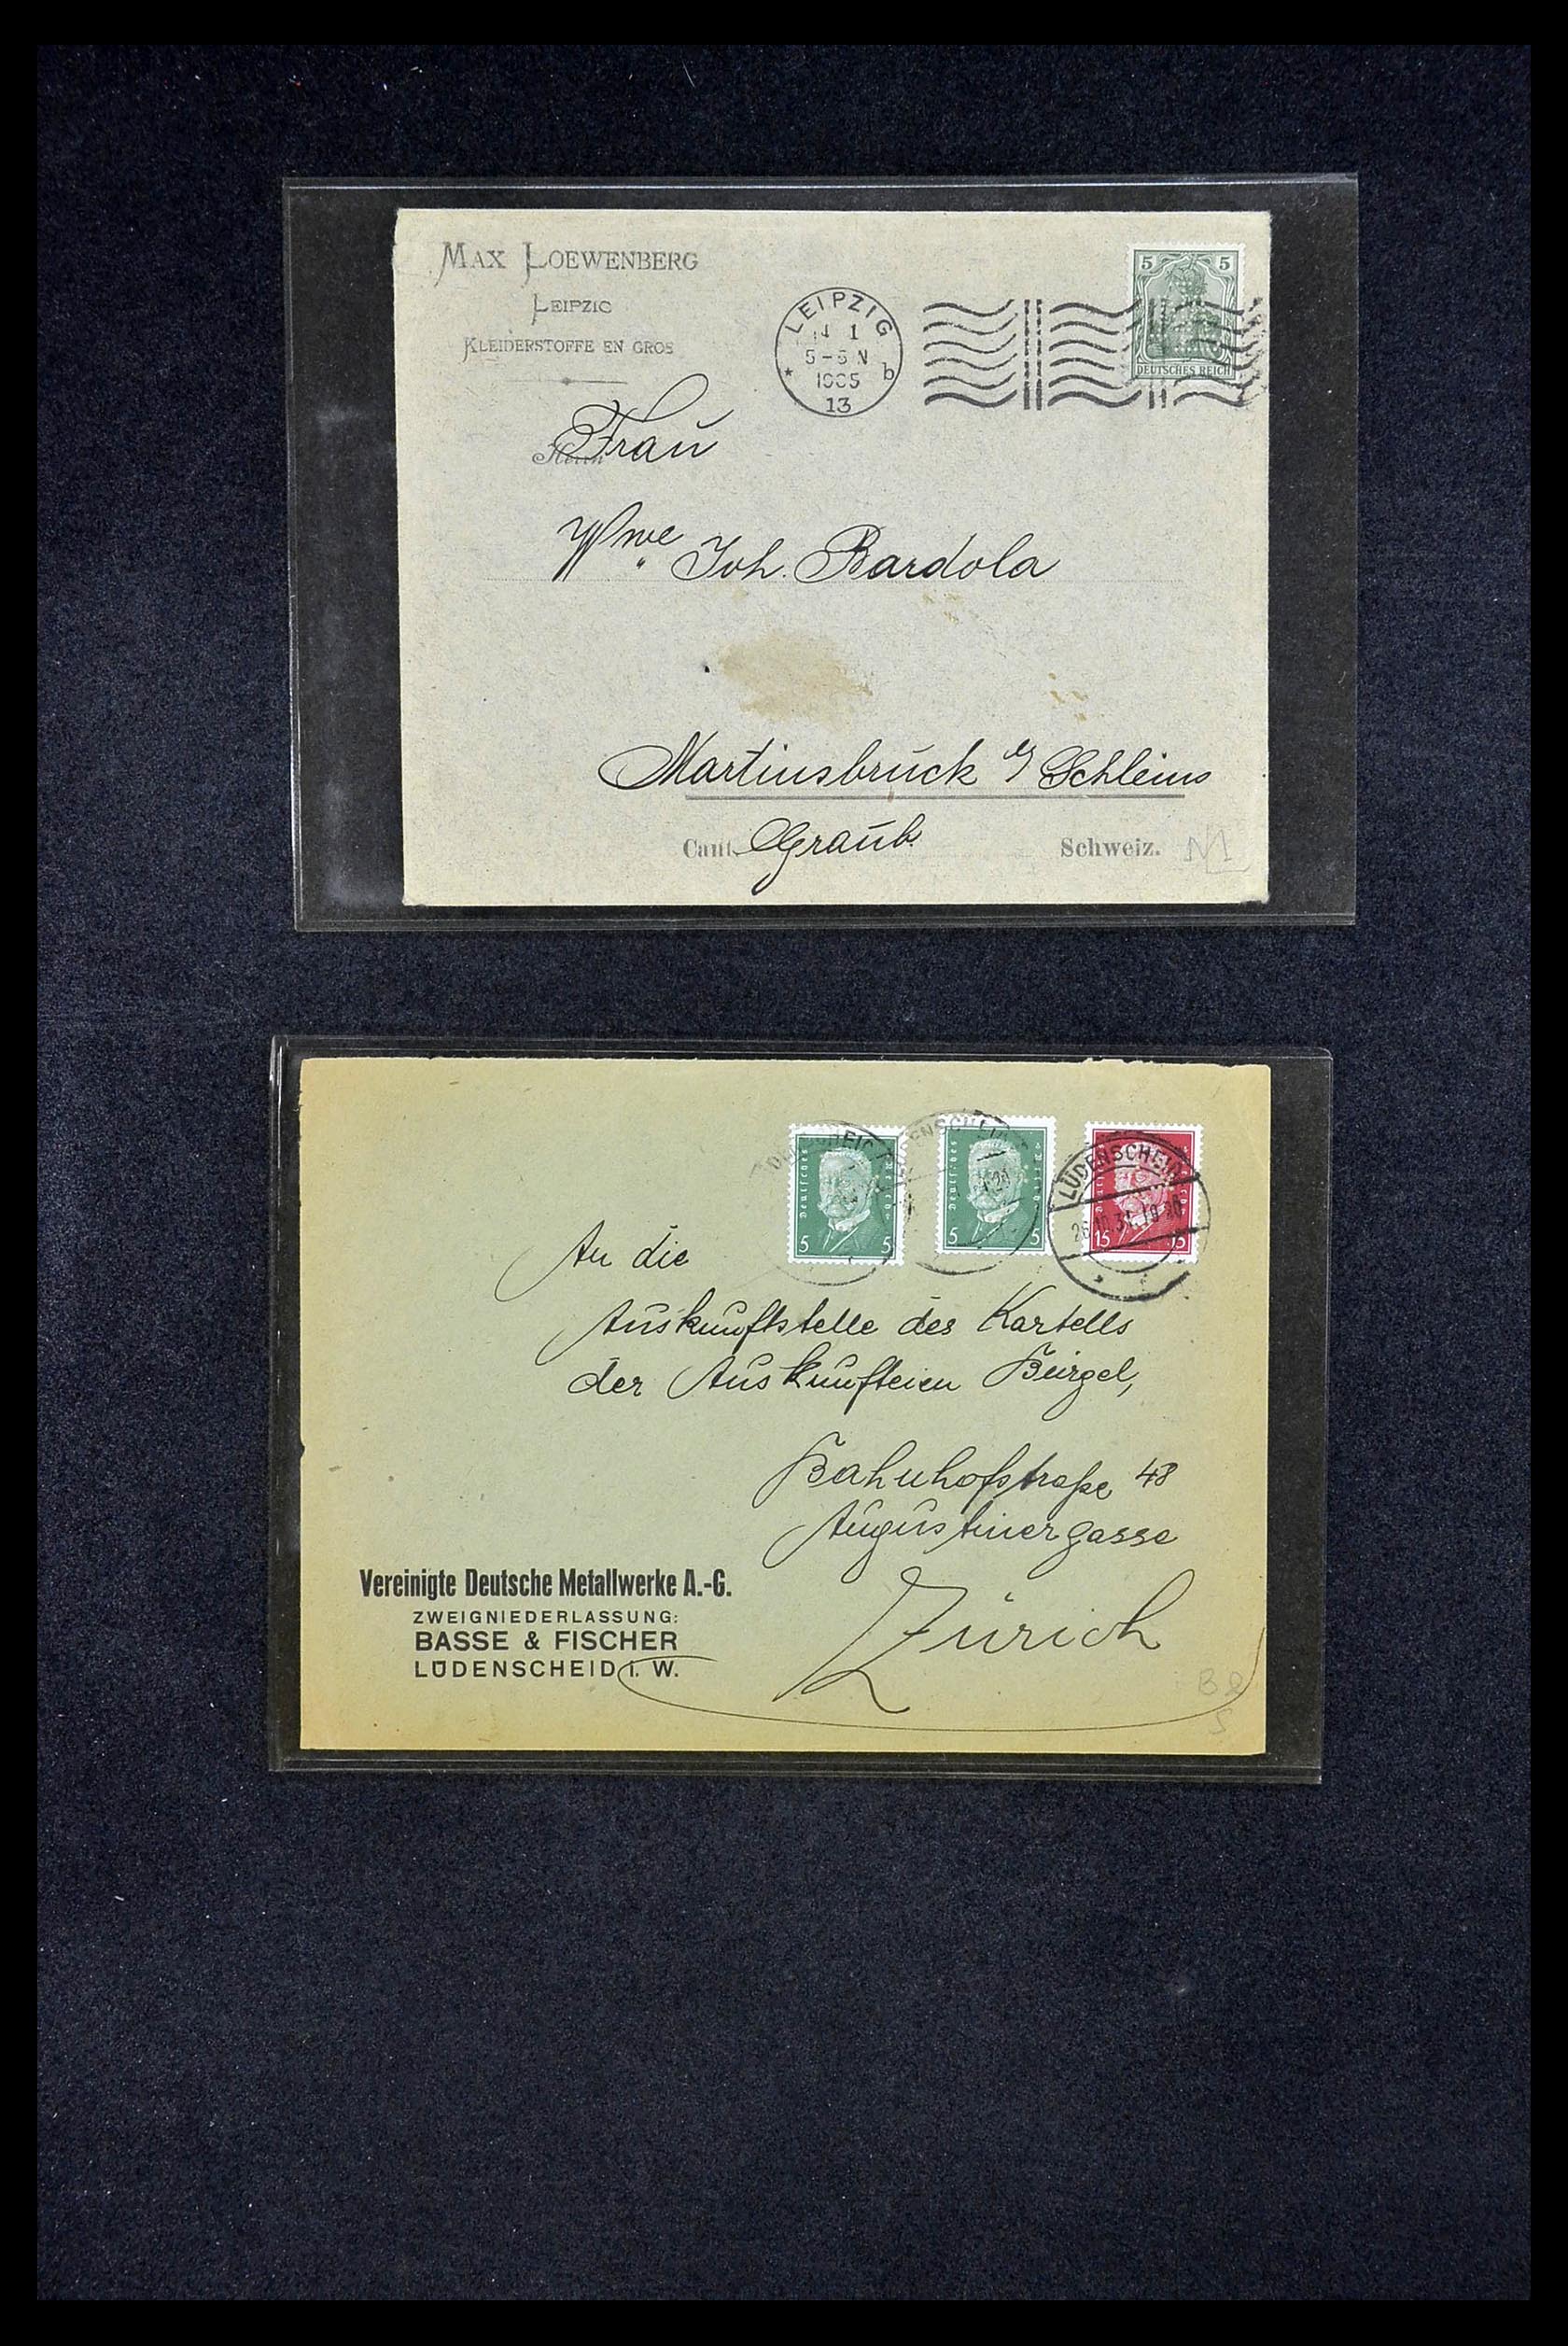 MAX LOEWENBERG
LEIPZIG
KLEIDERSTOFFE EN GROS
LEIPZIG
14 1
5-6 N
1905
* b
13
5 5
DEUTSCHES REICH
Frau
Wwe Joh. Bardola
Martinsbruck b/ Schleins
Cant. Graub. Schweiz.
Deutsches Reich
5 5
Deutsches Reich
5 5
LÜDENSCHEID
15 15
An die
Auskunftstelle des Kartells
der Auskunfteien Bürgel,
Bahnhofstraße 48
Augustinergasse
Zürich
Vereinigte Deutsche Metallwerke A.-G.
ZWEIGNIEDERLASSUNG:
BASSE & FISCHER
LÜDENSCHEID i. W.